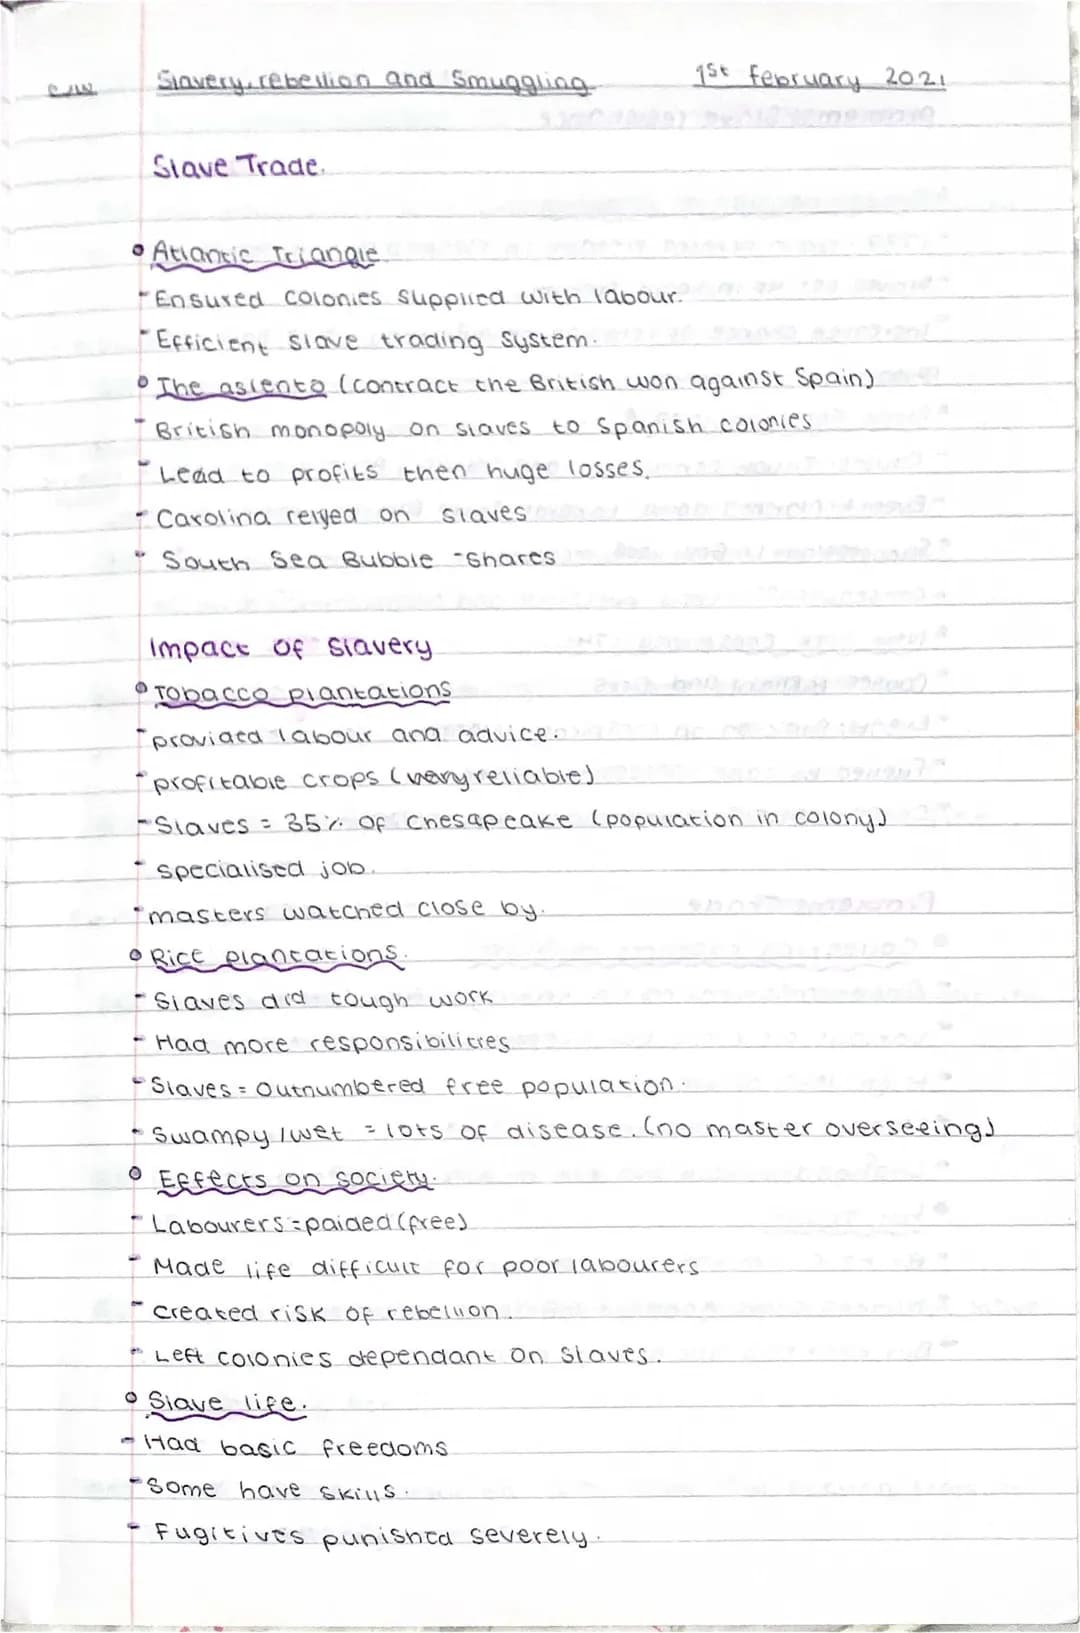 c/w Slavery, rebellion and Smuggling 1st february 2021
Slave Trade.
• Atlantic Triangle
- Ensured colonies supplied with labour.
- Efficient slave trading system.
• The asiento (contract the British won against Spain)
- British monopoly on slaves to Spanish colonies
- Lead to profits then huge losses.
- Carolina relyed on slaves
- South Sea Bubble - Shares
Impact of Slavery
• Tobacco plantations
- provided labour and advice.
- profitable crops (very reliable)
- Slaves = 35% of Chesapeake (population in colony)
- specialised job.
- masters watched close by.
• Rice plantations.
- Slaves did tough work
- Had more responsibilities
- Slaves = Outnumbered free population.
- Swampy/wet = lots of disease. (no master overseeing)
• Effects on society.
- Labourers = paided (free)
- Made life difficult for poor labourers
- created risk of rebellion.
- Left colonies dependant on slaves.
• Slave life.
- Had basic freedoms
- Some have skills.
- Fugitives punished severely.